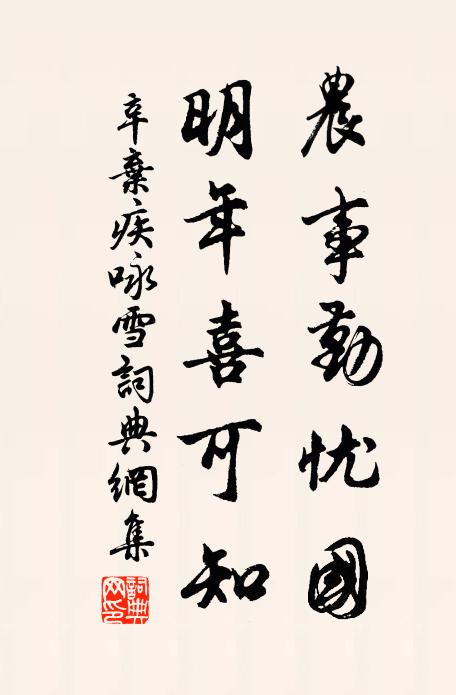 農事勤忧國
明年喜可知
辛棄疾咏雪詞典網集
詞典網印